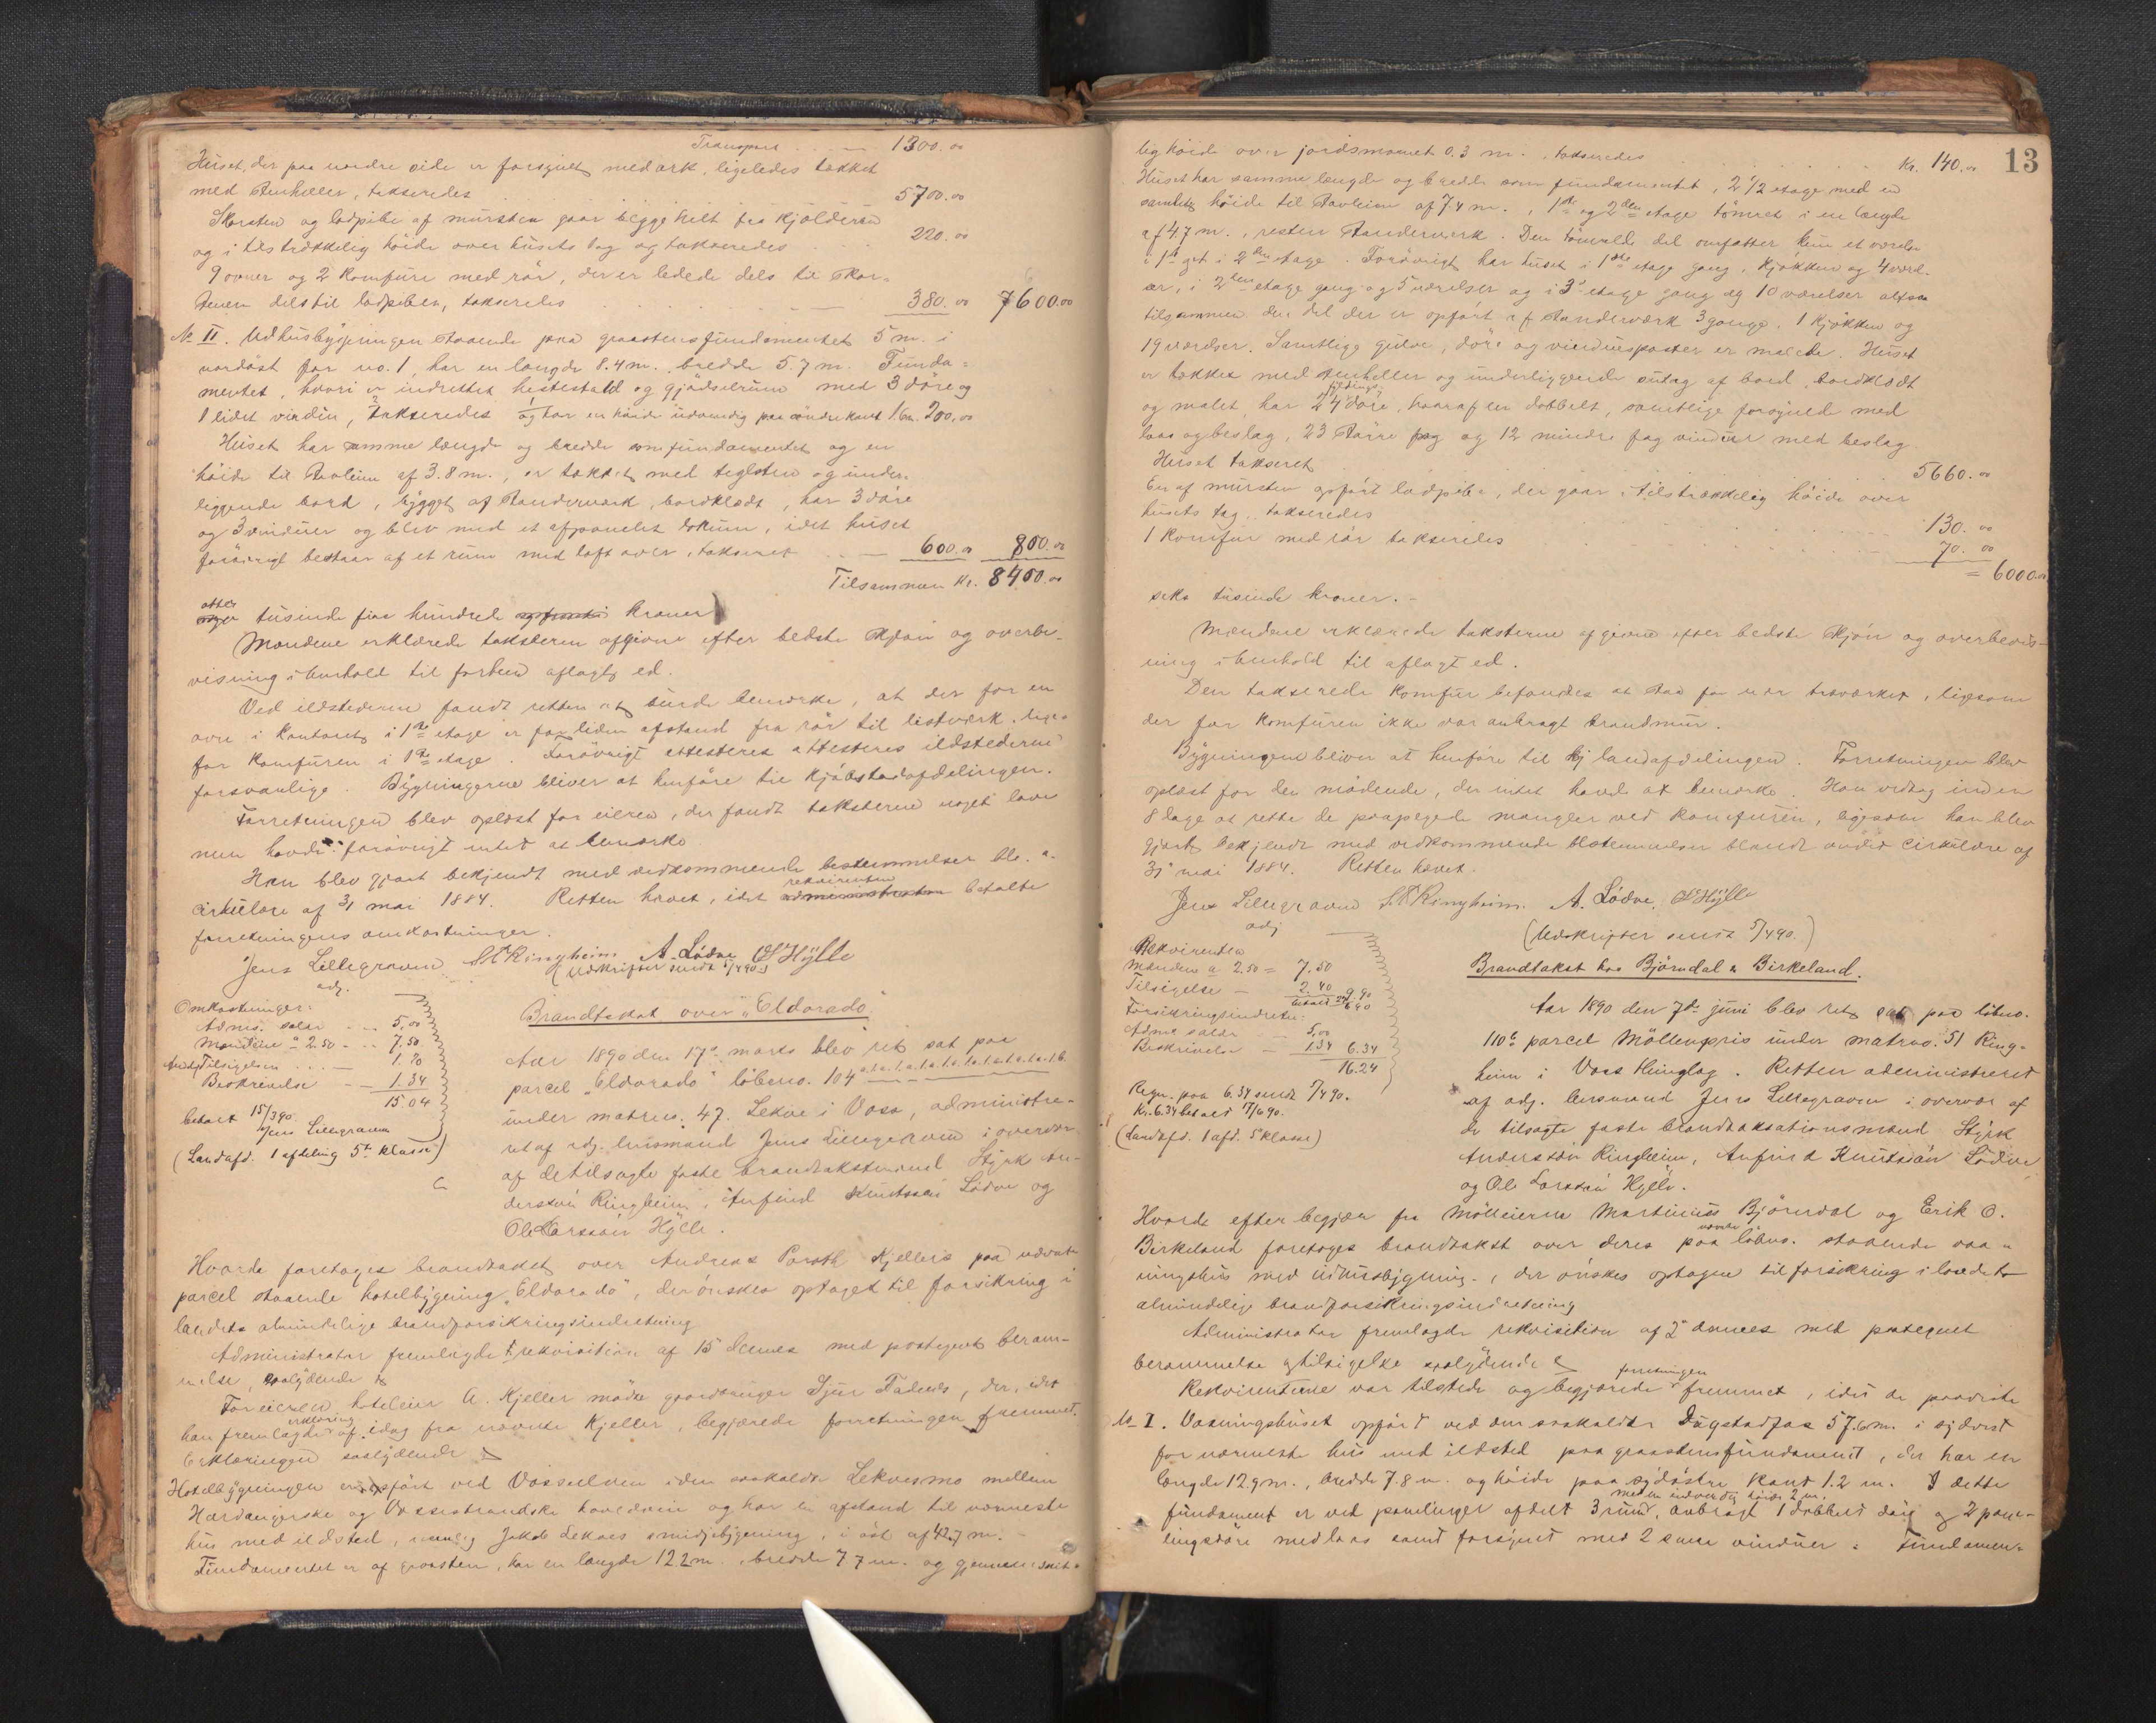 Transport . . — 1300.00
Huset, der paa nordre side er forsynet med ark, ligeledes tækket
med stenheller, takseredes . . . 5700.00
Skorsten og ladpibe af mursten gaar begge helt fra kjælderen
og i tilstrækkelig høide over husets tag og takseredes . . 220.00
9 ovner og 2 komfure med rør, der er ledede dels til skor-
stenen dels til ladpiben, takseredes . . . — 380.00 7600.00
No II. Udhusbygningen staaende paa graastensfundamentet 5 m. i
nordøst for no. 1, har en længde 8.4 m. bredde 5.7 m. Funda-
mentet, hvori er indrettet hestestald og gjødselrum med 3 døre og
1 lidet vindu, takseredes og har en høide udvendig paa søndre kant 200.00
Huset har samme længde og bredde som fundamentet og en
høide til stavleien af 3.8 m., er tækket med teglsten og under-
liggende bord, bygget af standerværk, bordklædt, har 3 døre
og 3 vinduer og blev med et afpanelet lokum, idet huset
forøvrigt bestaar af et rum med loft over, takseret . . — 600.00 800.00
Tilsammen Kr. 8400.00
otte tusinde fire hundrede kroner
Mændene erklærede taksterne afgivne efter bedste skjøn og overbe-
visning i henhold til forhen aflagt ed.
Ved ildstederne fandt retten at burde bemærke, at der for en
ovn i kontoret i 1ste etage er for liden afstand fra rør til listværk, lige-
for komfuren i 1ste etage. Forøvrigt attesteres attesteres ildstederne
forsvarlige. Bygningerne bliver at henføre til kjøbstadafdelingen.
Forretningen blev oplæst for eieren, der fandt taksterne noget lave
men havde forøvrigt intet at bemærke.
Han blev gjort bekjendt med vedkommende bestemmelser bl. a.
cirkulære af 31 mai 1884. Retten hævet, idet rekvirenten administrator betalte
forretningens omkostninger.
Jens Lillegraven S A Ringheim A. Lødve O L Hylle
adj. (Udskrifter sendt 5/4 90.)
Omkostninger:
Adms. salær . . . 5.00
Mændene a 2.50 . . 7.50
Tilsigelsen . . . — 1.20
Beskrivelse — 1.34
15.04
betalt 15/3 90.
Jens Lillegraven
(Landafd. 1 afdeling 5te klasse)
Brandtakst over "Eldorado".
Aar 1890 den 17de marts blev ret sat paa
parcel "Eldorado" løbeno. 104 a.t.a.t.a.t.a.t.a.t.a.t.b.
under matrno. 47. Lekve i Voss, administre-
ret af adj. lensmand Jens Lillegraven i overvær
af de tilsagte faste brandtakstmænd Styrk An-
dersson Ringheim, Anfind Knutssøn Lødve og
Ole Larssøn Hylle.
Hvorda foretoges brandtakst over Andreas Kjellers paa nævnte
parcel staaende hotelbygning "Eldorado", der ønskes optaget til forsikring i
landets almindelige brandforsikringsindretning
Administrator fremlagde rekvisition af 15 dennes med paategnet beram-
melse, saalydende
For eieren, hoteleier A. Kjeller mødte gaardbruger Sjur , der, idet
han fremlagde erklæring af idag fra nævnte Kjeller, begjærede forretningen fremmet.
Erklæringen saalydende
Hotelbygningen er opført ved Vosselven i den saakaldte Lekvesmo mellem
Hardangerske og Vossestrandske hovedvei og har en afstand til nærmeste
hus med ildsted, nemlig Jakob Lekves smidjebygning, i øst af 42.7 m. —
Fundamentet er af graasten, har en længde 12.2 m., bredde 7.7 m. og gjennemsnit-
13
lig høide over jordsmonnet 0.3 m., takseredes . . . Kr. 140.00
Huset har samme længde og bredde som fundamentet, 2 1/2 etage med en
samlet høide til stavleien af 7.4 m., 1ste og 2den etage tømret i en længde
af 4.7 m., resten standerværk. Den tømrede del omfatter kun et værelse
i 1ste og et i 2den etage. Forøvrigt har huset i 1ste etage gang, kjøkken og 4 værel-
ser, i 2den etage gang og 5 værelser og i 3die etage gang og 10 værelser altsaa
tilsammen den del der er opført af standerværk 3 gange. 1 kjøkken og
19 værelser. Samtlige gulve, døre og vinduesposter er malede. Huset
er tækket med stenheller og underliggende sutag af bord, bordklædt
og malet, har 24 fyldings døre, hvoraf en dobbelt, samtlige forsynede med
laas og beslag, 23 større fag og 12 mindre fag vinduer med beslag.
Huset takseret . . . 5660.00
En af mursten opført ladpibe, der gaar i tilstrækkelig høide over
husets tag, takseredes . . . 130.00
1 komfur med rør takseredes . . . 70.00
= 6000.00
seks tusinde kroner. —
Mændene erklærede taksterne afgivne efter bedste skjøn og overbevis-
ning i henhold til aflagt ed.
Den takserede komfur befandtes at staa for nær træværket, ligesom
der for komfuren ikke var anbragt brandmur.
Bygningen bliver at henføre til kj landafdelingen. Forretningen blev
oplæst for den mødende, der intet havde at bemærke. Han vedtog inden
8 dage at rette de paapegede mangler ved komfuren, ligesom han blev
gjort bekjendt med vedkommende bestemmelser blandt andet cirkulære af
31 mai 1884. Retten hævet.
Jens Lillegraven S A Ringheim. A. Lødve. O L Hylle
adj (Udskrifter sendt 5/4 90.)
Rekvirenten
Mændene a 2.50 = 7.50
Tilsigelse — 2.40 9.90
Forsikringsindretn:
Adms salær 5.00
Beskrivelse — 1.34 6.34
16.24
Regn. paa 6.34 sendt 7/4 90.
Kr. 6.34 betalt 17/6 90.
(Landafd. 1 afd. 5 klasse)
Brandtakst hos Bjørndal & Birkeland.
Aar 1890 den 7de juni blev ret sat paa løbno.
110 c parcel Møllenpris under matrno. 51 Ring-
heim i Voss thinglag. Retten administreret
af adj. lensmand Jens Lillegraven i overvær af
de tilsagte faste brandtaksationsmænd Styrk
Andersson Ringheim, Anfind Knutssøn Lødve
og Ole Larssøn Hylle.
Hvorda efter begjær fra Mølleierne Martinius Bjørndal og Erik O.
Birkeland foretoges brandtakst over deres paa nævnte løbno. staaende vaa-
ningshus med udhusbygning, der ønskes optagen til forsikring i landets
almindelige brandforsikringsindretning
Administrator fremlagde rekvisition af 2 dennes med paategnet
berammelse og tilsigelse saalydende
Rekvirenterne var tilstede og begjærede forretningen fremmet, idet de paaviste
No I. Vaaningshuset opført ved den saakaldte 57.6 m. i sydvest
for nærmeste hus med ildsted paa graastensfundament, der har en
længde 12.9 m., bredde 7.8 m. og høide paa sydøstre kant 1.2 m. I dette
fundament er ved panelinger afdelt 3 rum, med en indvendig høide 2 m. anbragt 1 dobbelt dør og 2 pane-
lingsdøre med laas samt forsynet med 2 smaa vinduer. Fundamen-